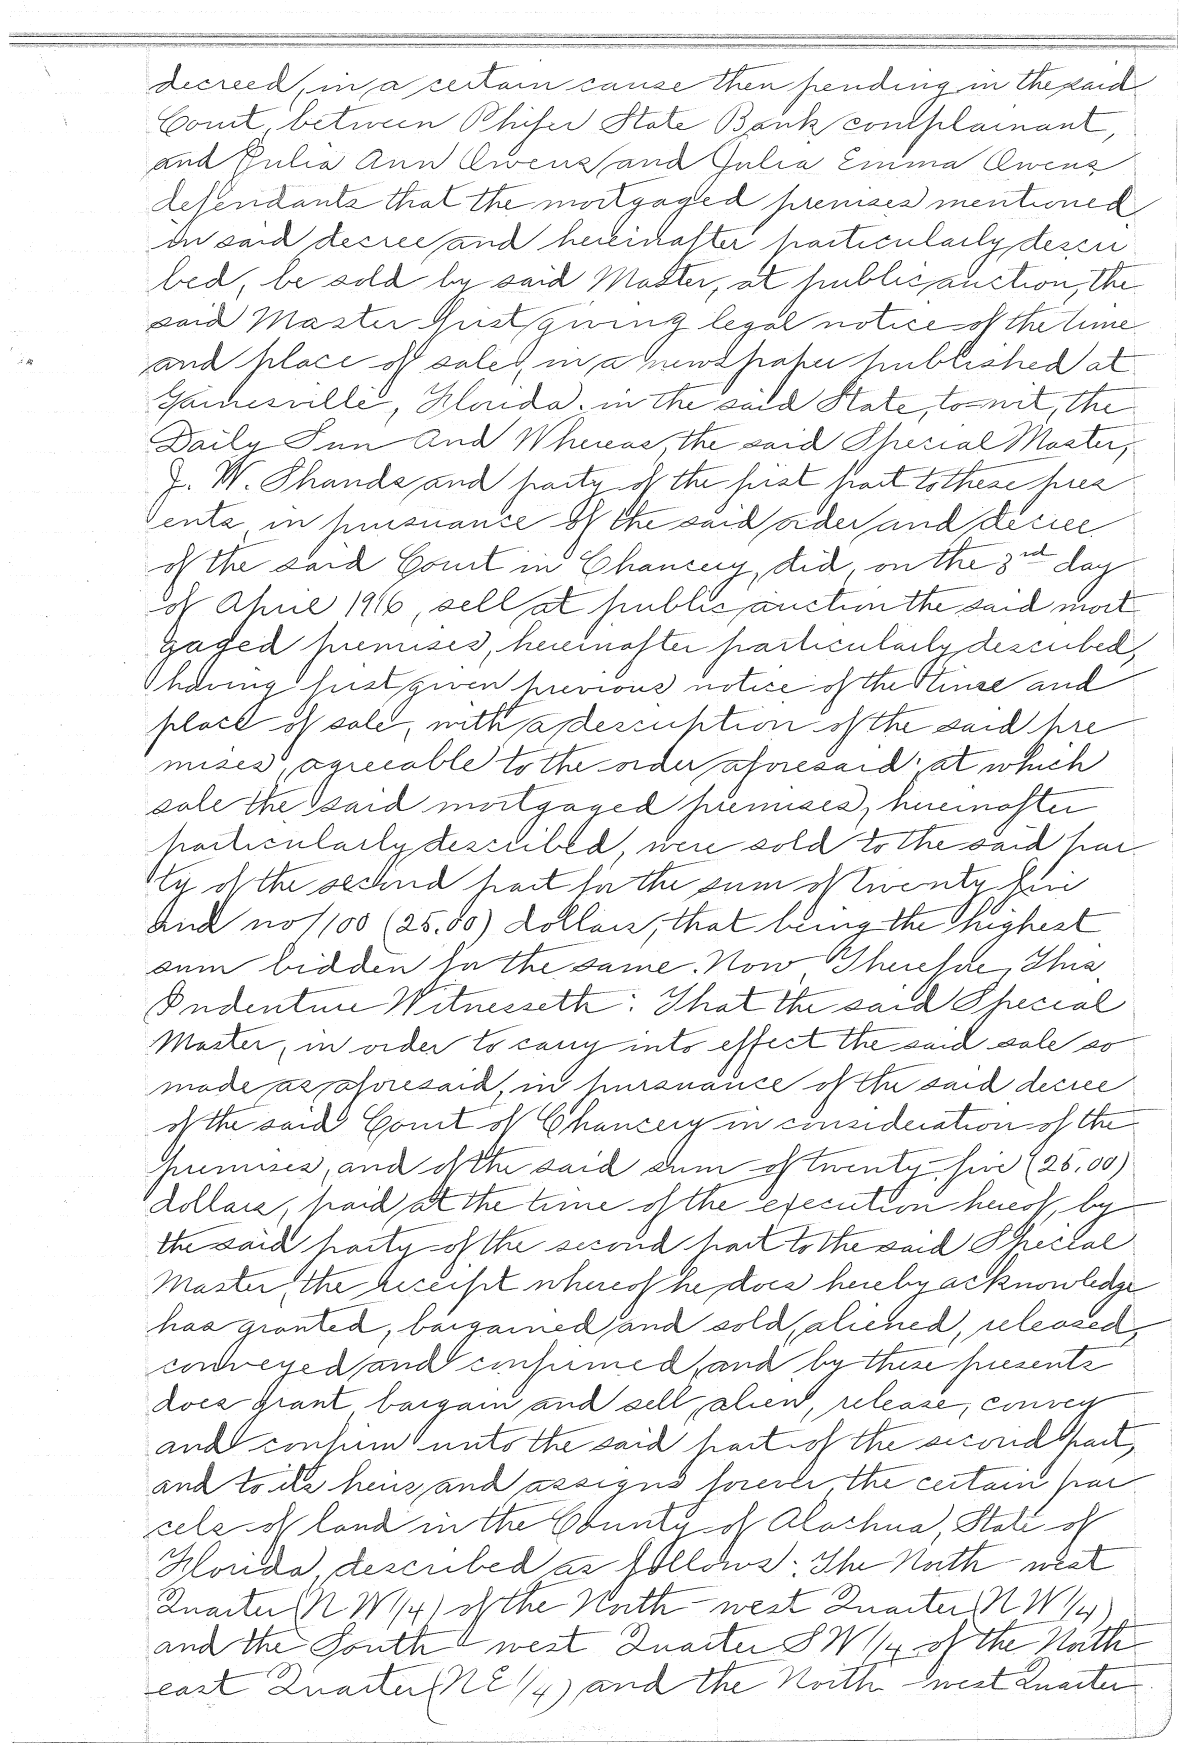 decreed, in a certain cause then pending in the said
Court, between Phifer State Bank complainant,
and Julia Ann Owens and Julia Emma Owens
defendants that the mortgaged premises mentioned
in said decree and hereinafter particularly descri
bed, be sold by said Master, at public auction, the
said Master first giving legal notice of the time
and place of sale, in a newspaper published at
Gainesville, Florida. in the said State, to-wit, the
Daily Sun And Whereas, the said Special Master,
J. W. Shands and party of the first part to these pres
ents, in pursuance of the said order and decree
of the said Court in Chancery, did, on the 3rd day
of April 1916, sell at public auction the said mort
gaged premises, hereinafter particularly described,
having first given previous notice of the time and
place of sale, with a description of the said pre
mises, agreeable to the order aforesaid; at which
sale the said mortgaged premises, hereinafter
particularly described, were sold to the said par
ty of the second part for the sum of twenty five
and no/100 (25.00) dollars, that being the highest
sum bidden for the same. Now, Therefore, This
Indenture Witnesseth: That the said Special
Master, in order to carry into effect the said sale so
made as aforesaid, in pursuance of the said decree
of the said Court of Chancery in consideration of the
premises, and of the said sum of twenty five (25.00)
dollars, paid at the time of the execution hereof, by
the said party of the second part to the said Special
Master, the receipt whereof he does hereby acknowledge
has granted, bargained and sold, aliened, released,
conveyed and confirmed, and by these presents
does grant, bargain and sell, alien, release, convey
and confirm unto the said part of the second part,
and to its heirs and assigns forever, the certain par
cels of land in the County of Alachua, State of
Florida, described as follows: The North west
Quarter (N W 1/4) of the North-west Quarter (N W 1/4)
and the South west Quarter S W 1/4 of the North
east Quarter (N E 1/4) and the North-west Quarter